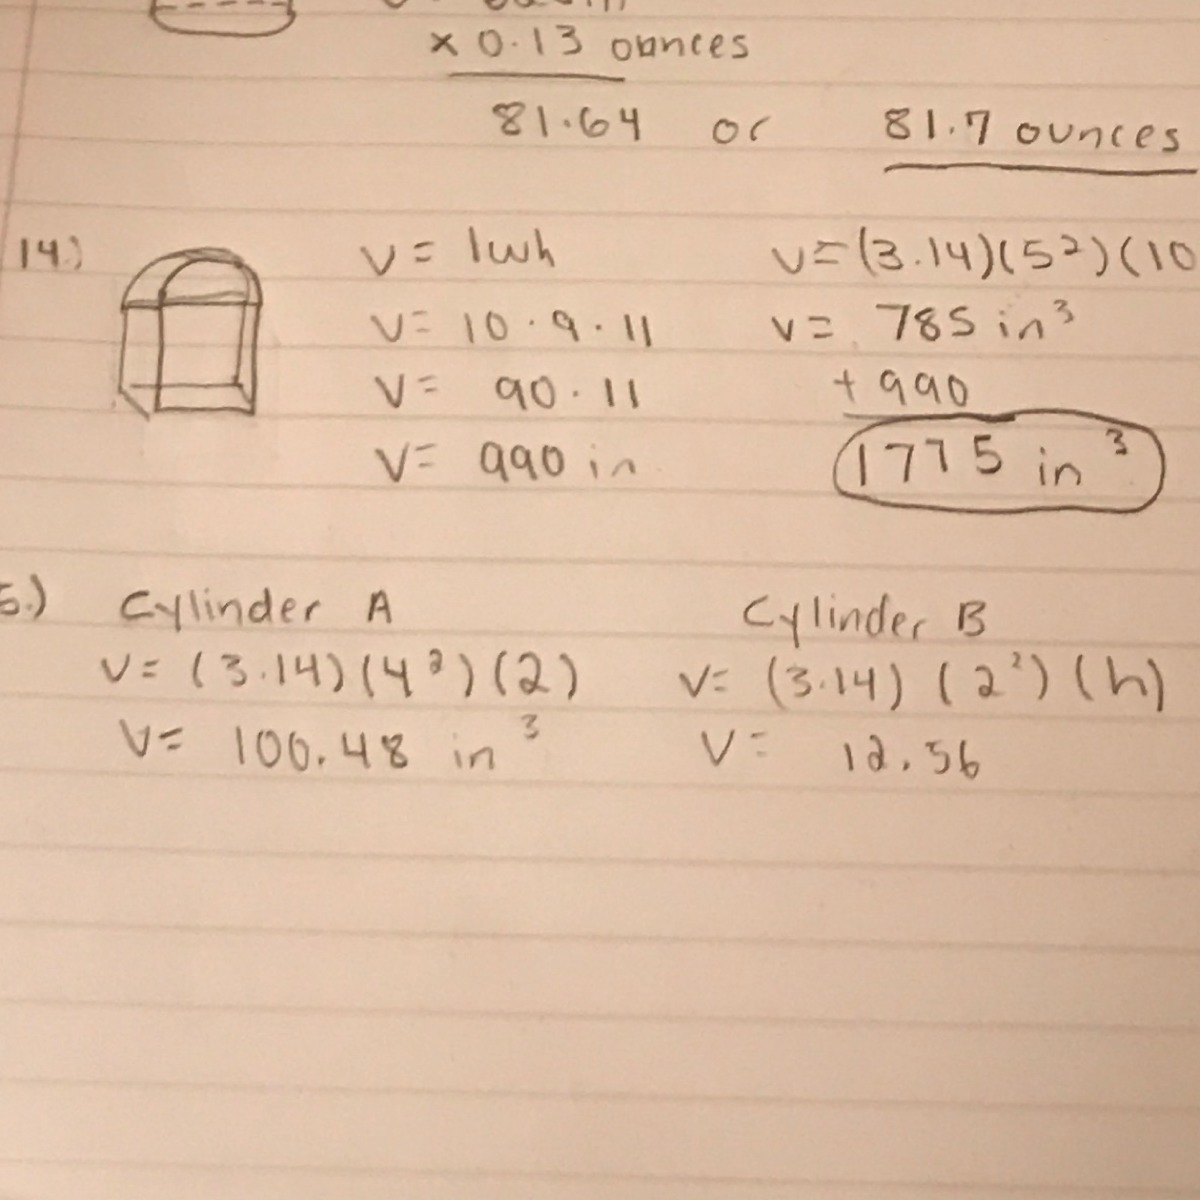 x 0.13 ounces
81.64 or 81.7 ounces
14.)
V = lwh
V = 10 · 9 · 11
V = 90 · 11
V = 990 in
V = (3.14)(5²)(10
V = 785 in³
+ 990
1775 in³
5.) Cylinder A
V = (3.14)(4²)(2)
V = 100.48 in³
Cylinder B
V = (3.14)(2²)(h)
V = 12.56